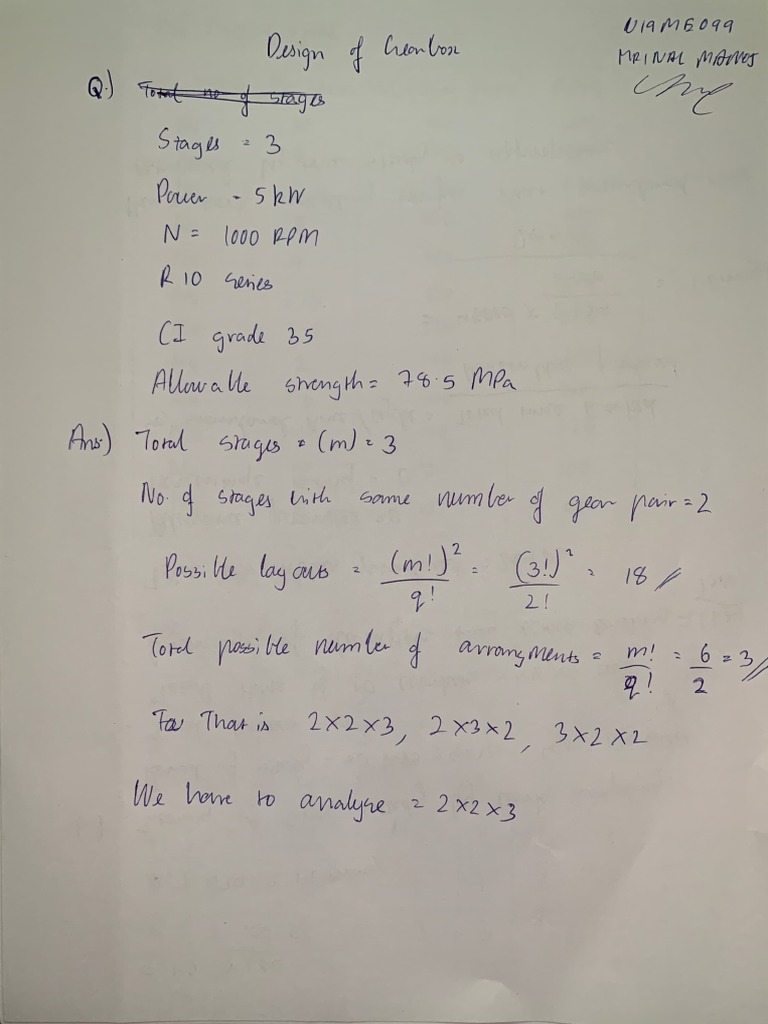 U19ME099
MRINAL MANOJ
Design of Gearbox
Q.) Total no of stages
Stages = 3
Power = 5 kW
N = 1000 RPM
R 10 series
CI grade 35
Allowable strength = 78.5 MPa
Ans) Total stages = (m) = 3
No. of stages with same number of gear pair = 2
Possible layouts = (m!)²/q! = (3!)²/2! = 18 //
Total possible number of arrangments = m!/q! = 6/2 = 3 //
That is 2×2×3, 2×3×2, 3×2×2
We have to analyse = 2×2×3